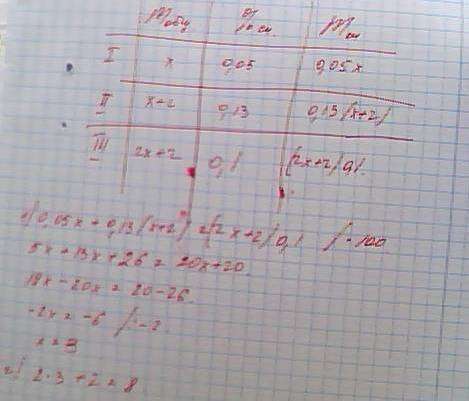 m общ % см. m см
I x 0,05 0,05x
II x+2 0,13 0,13(x+2)
III 2x+2 0,1 (2x+2)0,1
1) 0,05x + 0,13(x+2) = (2x+2)0,1 /·100
5x + 13x + 26 = 20x + 20
18x - 20x = 20 - 26
-2x = -6 /:-2
x = 3
2) 2·3 + 2 = 8